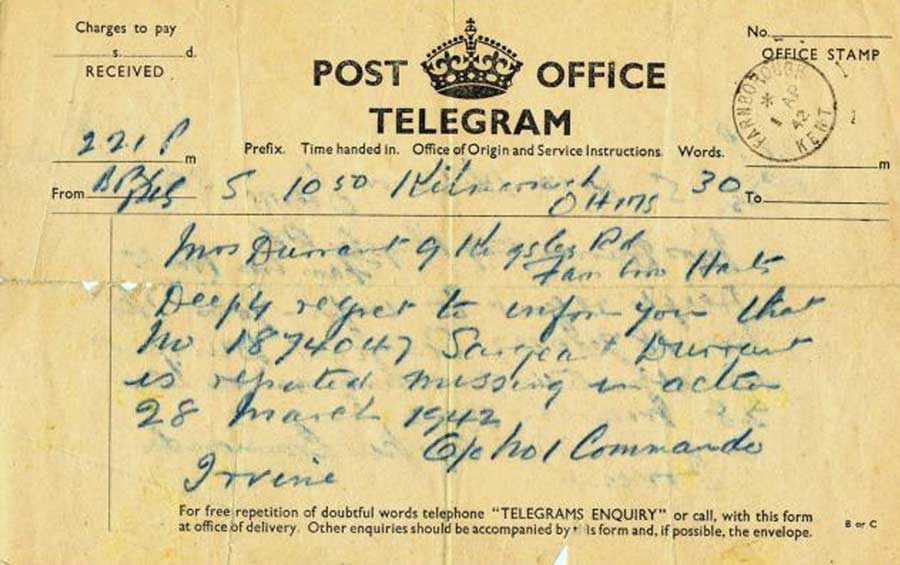 Charges to pay
s. d.
RECEIVED
POST OFFICE
TELEGRAM
No.
OFFICE STAMP
FARNBOROUGH
* 1 AP 42
KENT
Prefix. Time handed in. Office of Origin and Service Instructions. Words.
221 P m
m
From
S 10 50 Kilmarnock 30
To
OHMS
Mrs Durrant 9 Rd
Deeply regret to inform you that
No 1874047 Sargeant Durrant
is reported missing in action
28 March 1942
O/c No 1 Commando
Irvine
For free repetition of doubtful words telephone "TELEGRAMS ENQUIRY" or call, with this form
at office of delivery. Other enquiries should be accompanied by this form and, if possible, the envelope.
B or C